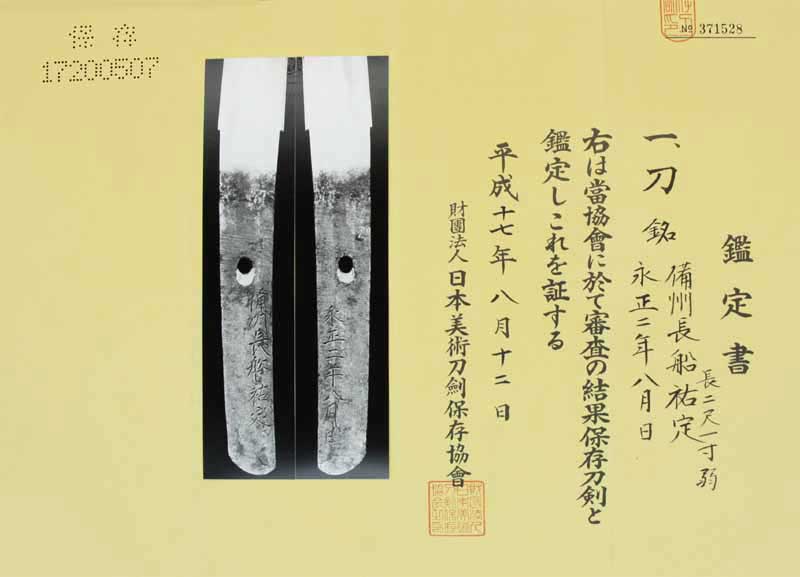 保存
17200507
№ 371528
鑑定書
一、刀 銘 備州長船祐定
永正二年八月日
長二尺一寸弱
右は當協會に於て審査の結果保存刀剣と
鑑定しこれを証する
平成十七年八月十二日
財團法人 日本美術刀劍保存協會
備州長船祐定
永正二年八月日